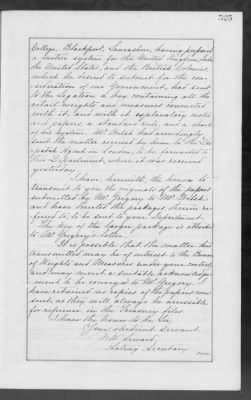 525
College, Blackpool, Lancashire, having prepared
a metric system for the United Kingdom, India
the United States, and the British Colonies,
which he desired to submit for the con-
sideration of our Government, had sent
to the Legation a box containing all the
retail weights and measures connected
with it, and with it explanatory notes
and papers, a standard rule, and a chart
of his system. Mr. Welsh had accordingly
sent the matter received by him to the Des-
patch Agent in London, to be forwarded to
this Department, where it was received
yesterday.
I have, herewith, the honor to
transmit to you the originals of the papers
submitted by Mr. Gregory to Mr. Welsh,
and have directed the packages, therein re-
ferred to, to be sent to your Department.
The key of the larger package is attached
to Mr. Gregory's letter.
It is possible that the matter thus
transmitted may be of interest to the Bureau
of Weights and Measures under your control,
and may merit a suitable acknowledge-
ment to be conveyed to Mr. Gregory. I
have retained no copies of the papers now
sent, as they will always be accessible
for reference on the Treasury files.
I have the honor to be, Sir,
Your obedient servant,
F. W. Seward,
Acting Secretary